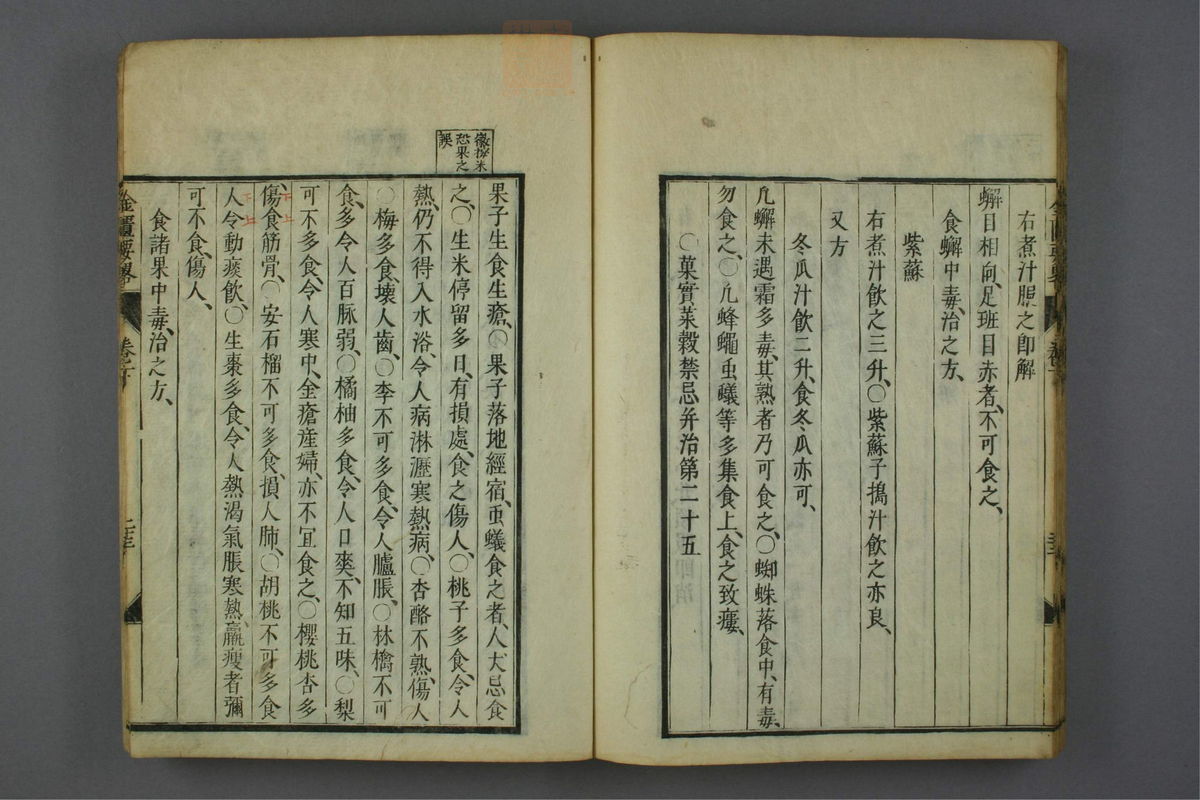 右煮汁服之即解
蟹目相向、足班目赤者、不可食之、
食蟹中毒、治之方、
紫蘇
右煮汁飲之三升、〇紫蘇子搗汁飲之亦良、
又方
冬瓜汁飲二升、食冬瓜亦可、
凢蟹未遇霜多毒、其熟者乃可食之、〇蜘蛛落食中、有毒、
勿食之、〇凢蜂蠅虫蟻等多集食上、食之致瘻、
〇菓實菜穀禁忌并治第二十五
徽按米
恐果之
誤
果子生食生瘡、〇果子落地經宿、虫蟻食之者、人大忌食
之、〇生米停留多日、有損處、食之傷人、〇桃子多食、令人
熱、仍不得入水浴、令人病淋瀝寒熱病、〇杏酪不熟、傷人
〇梅多食、壞人齒、〇李不可多食、令人臚脹、〇林檎不可
食、多令人百脉弱、〇橘柚多食、令人口爽、不知五味、〇梨
可不多食、令人寒中、金瘡産婦、亦不冝食之、〇櫻桃杏多
傷食筋骨、〇安石榴不可多食、損人肺、〇胡桃不可多食
人令動痰飲、〇生棗多食、令人熱渴氣脹寒熱、羸瘦者彌
可不食、傷人、
食諸果中毒、治之方、
金匱要畧
卷之下